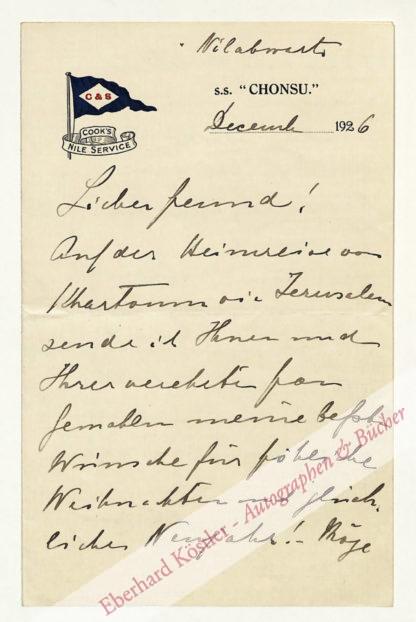 Nilabwärts
s.s. "CHONSU."
C & S
COOK'S
NILE SERVICE
Decemb 1926
Lieber freund!
Auf der Heimreise von
Khartoum via Jerusalem
sende ich Ihnen und
Ihrer verehrten frau
Gemahlin meine besten
Wünsche für fröhliche
Weihnachten und glück,
liches Neujahr! - Möge
Eberhard Köstler - Autographen & Bücher